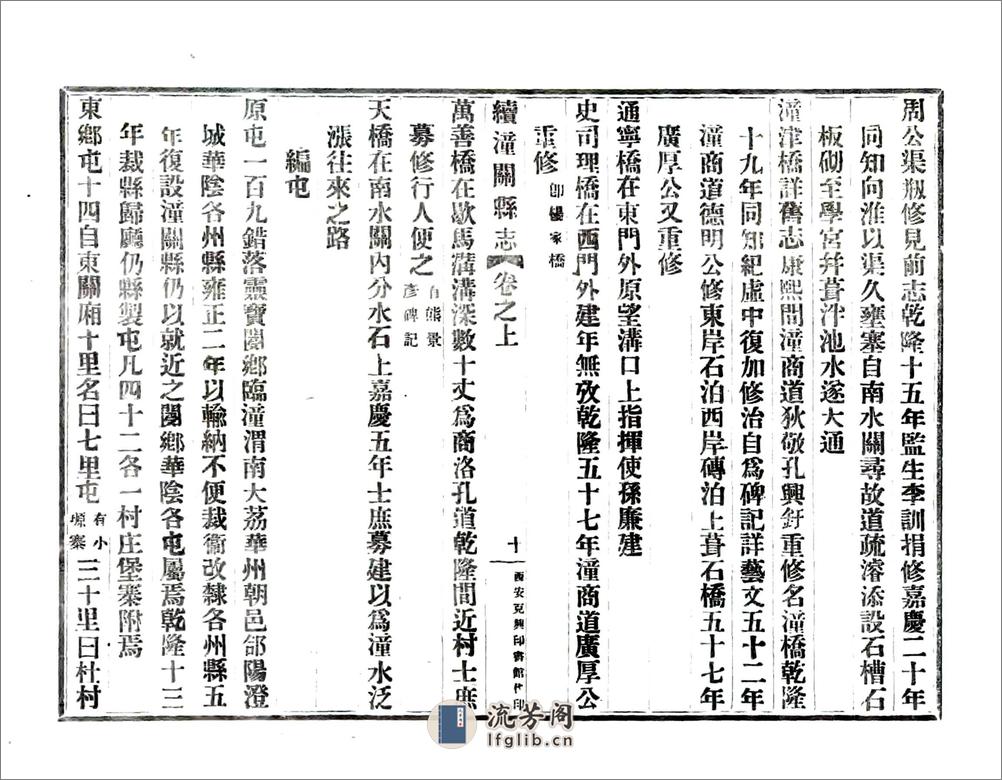 周公渠瓶修見前志乾隆十五年監生李訓捐修嘉慶二十年
同知向淮以渠久壅塞自南水關尋故道疏濬添設石槽石
板砌至學宮幷葺泮池水遂大通
潼津橋詳舊志康熙間潼商道狄敬孔興釪重修名潼橋乾隆
十九年同知紀虛中復加修治自爲碑記詳藝文五十二年
潼商道德明公修東岸石泊西岸磚泊上葺石橋五十七年
廣厚公又重修
通寧橋在東門外原望溝口上指揮使孫廉建
史司理橋在西門外建年無攷乾隆五十七年潼商道廣厚公
重修 卽楊家橋
續潼關縣志 卷之上 十 西安克興印書館代印
萬善橋在歇馬溝溝深數十丈爲商洛孔道乾隆間近村士庶
募修行人便之 有熊景彥碑記
天橋在南水關內分水石上嘉慶五年士庶募建以爲潼水泛
漲往來之路
編屯
原屯一百九錯落靈寶閿鄉臨潼渭南大荔華州朝邑郃陽澄
城華陰各州縣雍正二年以輸納不便裁衞改隸各州縣五
年復設潼關縣仍以就近之閿鄉華陰各屯屬焉乾隆十三
年裁縣歸廳仍縣製屯凡四十二各一村庄堡寨附焉
東鄉屯十四自東關廂十里名曰七里屯 有小塬寨 三十里曰杜村
流芳阁
lfglib.cn